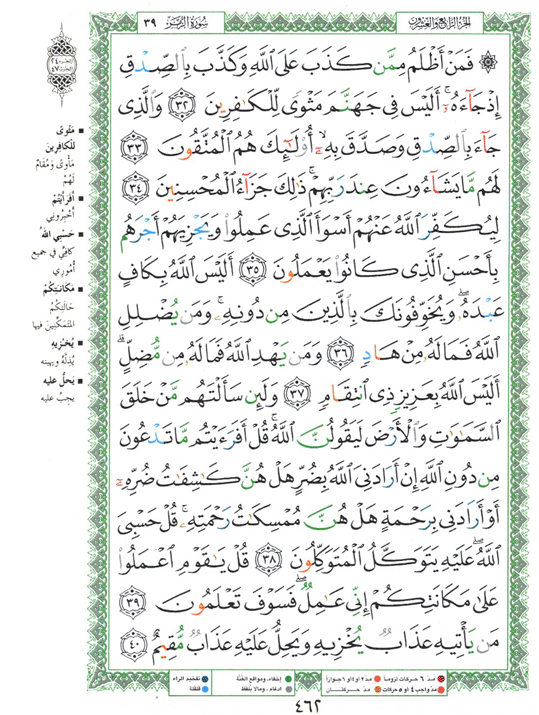 الجزء الرابع والعشرون
سورة الزمر ٣٩
فَمَنْ أَظْلَمُ مِمَّن كَذَبَ عَلَى ٱللَّهِ وَكَذَّبَ بِٱلصِّدْقِ
إِذْ جَآءَهُۥٓ ۚ أَلَيْسَ فِى جَهَنَّمَ مَثْوًى لِّلْكَٰفِرِينَ ٣٢ وَٱلَّذِى
جَآءَ بِٱلصِّدْقِ وَصَدَّقَ بِهِۦٓ ۙ أُو۟لَٰٓئِكَ هُمُ ٱلْمُتَّقُونَ ٣٣
لَهُم مَّا يَشَآءُونَ عِندَ رَبِّهِمْ ۚ ذَٰلِكَ جَزَآءُ ٱلْمُحْسِنِينَ ٣٤
لِيُكَفِّرَ ٱللَّهُ عَنْهُمْ أَسْوَأَ ٱلَّذِى عَمِلُوا۟ وَيَجْزِيَهُمْ أَجْرَهُم
بِأَحْسَنِ ٱلَّذِى كَانُوا۟ يَعْمَلُونَ ٣٥ أَلَيْسَ ٱللَّهُ بِكَافٍ
عَبْدَهُۥ ۖ وَيُخَوِّفُونَكَ بِٱلَّذِينَ مِن دُونِهِۦ ۚ وَمَن يُضْلِلِ
ٱللَّهُ فَمَا لَهُۥ مِنْ هَادٍ ٣٦ وَمَن يَهْدِ ٱللَّهُ فَمَا لَهُۥ مِن مُّضِلٍّ ۗ
أَلَيْسَ ٱللَّهُ بِعَزِيزٍ ذِى ٱنتِقَامٍ ٣٧ وَلَئِن سَأَلْتَهُم مَّنْ خَلَقَ
ٱلسَّمَٰوَٰتِ وَٱلْأَرْضَ لَيَقُولُنَّ ٱللَّهُ ۚ قُلْ أَفَرَءَيْتُم مَّا تَدْعُونَ
مِن دُونِ ٱللَّهِ إِنْ أَرَادَنِىَ ٱللَّهُ بِضُرٍّ هَلْ هُنَّ كَٰشِفَٰتُ ضُرِّهِۦٓ
أَوْ أَرَادَنِى بِرَحْمَةٍ هَلْ هُنَّ مُمْسِكَٰتُ رَحْمَتِهِۦ ۚ قُلْ حَسْبِىَ
ٱللَّهُ ۖ عَلَيْهِ يَتَوَكَّلُ ٱلْمُتَوَكِّلُونَ ٣٨ قُلْ يَٰقَوْمِ ٱعْمَلُوا۟
عَلَىٰ مَكَانَتِكُمْ إِنِّى عَٰمِلٌ ۖ فَسَوْفَ تَعْلَمُونَ ٣٩
مَن يَأْتِيهِ عَذَابٌ يُخْزِيهِ وَيَحِلُّ عَلَيْهِ عَذَابٌ مُّقِيمٌ ٤٠
مَثْوًى
لِلْكَافِرِينَ
مَأْوًى وَمُقَامٌ
لَهُمْ
أَفَرَأَيْتُمْ
أَخْبِرُونِي
حَسْبِيَ اللهُ
كَافِيَّ فِي جَمِيعِ
أُمُورِي
مَكَانَتِكُمْ
حَالَتِكُم
المُتَمَكِّنِينَ فيها
يُخْزِيهِ
يُذِلُّهُ ويهينه
يَحِلُّ عليه
يجبُ عليه
مدّ ٦ حركات لزوماً
مدّ ٢ أو ٤ أو ٦ جوازاً
إخفاء، ومواقع الغُنَّة
تفخيم الراء
مدّ واجب ٤ أو ٥ حركات
مدّ حركتان
ادغام، ومالا يُلفظ
قلقلة
٤٦٢